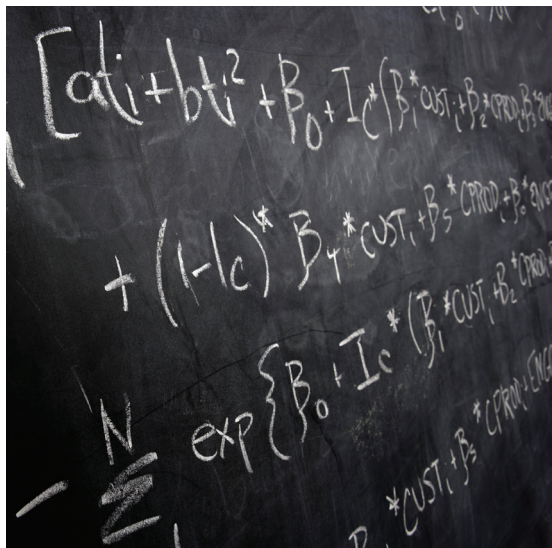 [ati+bti²+β₀+Ic*(β₁*CUSTi+β₂*CPROD+β₃*
+(1-Ic)*β₄*CUSTi+β₅*CPRODi+β₆*
N exp{β₀+Ic*(β₁*CUSTi+β₂*CPROD+
-Σ *CUSTi+β₅*CPROD+